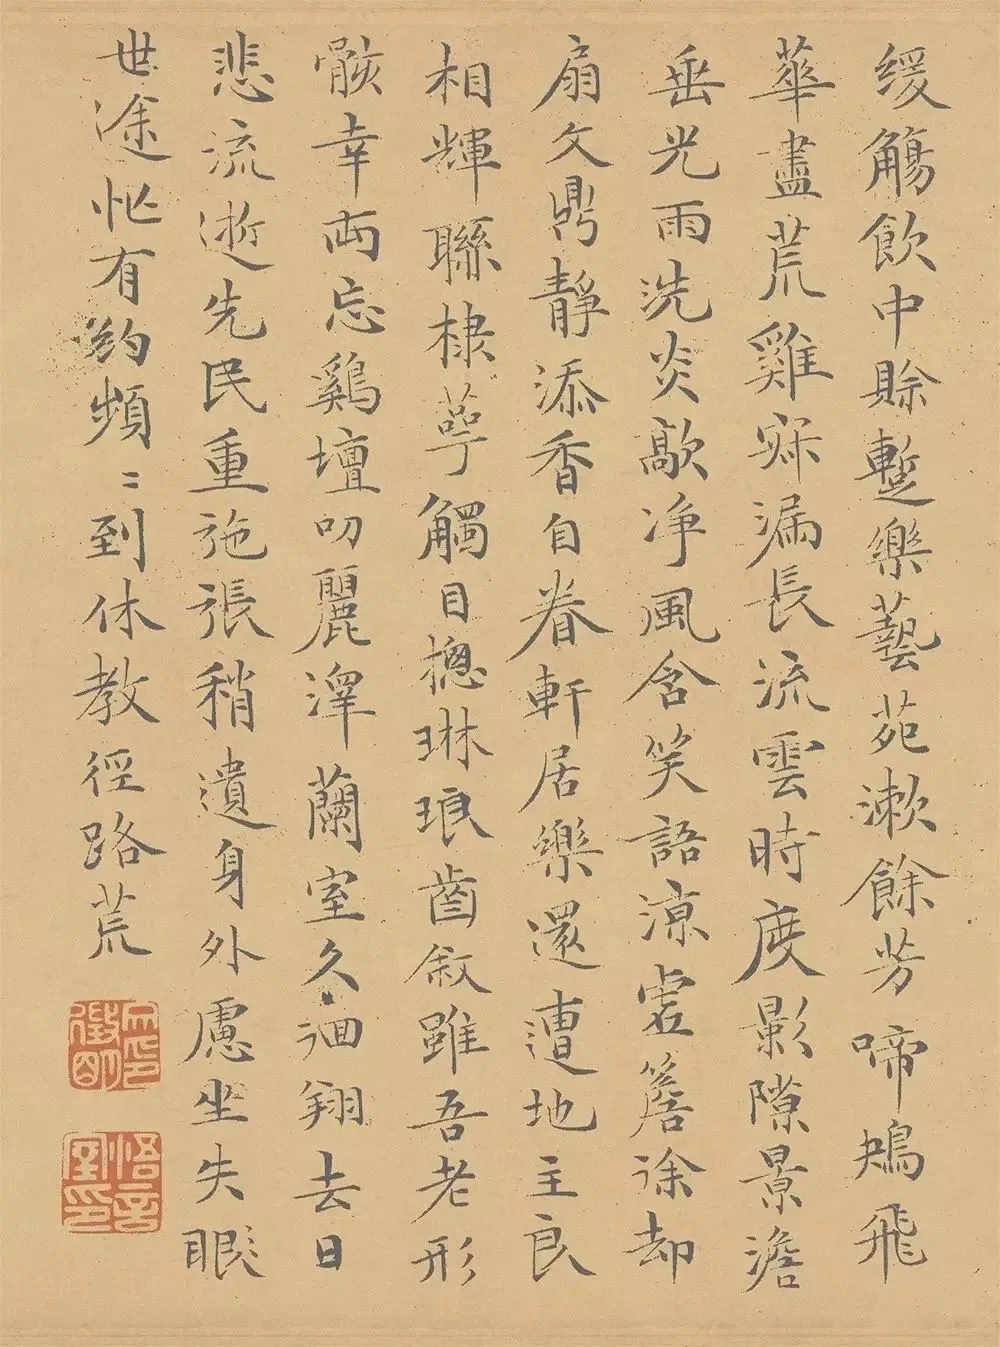 缓觴飲中賒蹔樂藝苑漱餘芳啼鴂飛
華盡荒雞寐漏長流雲時度影隙景澹
垂光雨洗炎歊净風含笑語涼虚簷徐却
扇文鼎靜添香自眷軒居樂還遭地主良
相輝聯棣萼觸目摠琳琅齒敘雖吾老形
骸幸兩忘鷄壇叨麗澤蘭室久徊翔去日
悲流逝先民重弛張稍遺身外慮坐失眼
世途忙有約頻〻到休教徑路荒
徵明印
悟言室印